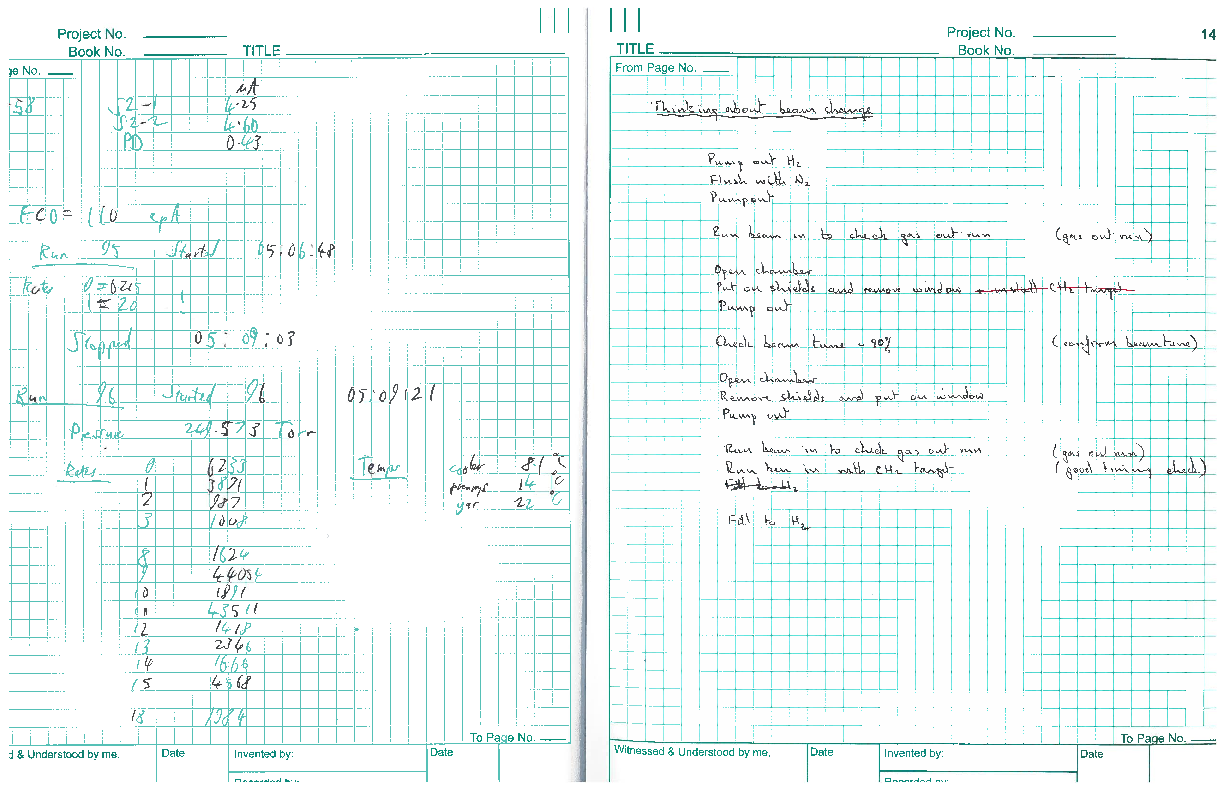 Project No.
Book No.
TITLE
ge No.
µA
58 S2-1 4.25
S2-2 4.60
PD 0.43
FC0 = 110 epA
Run 95 Started 05:06:48
Rates 0 = 6215
1 = 20
Stopped 05:09:03
Run 96 Started 96 05:09:21
Pressure 249.573 Torr
Rates 0 6233 Temps cooler 8.1 °C
1 3871 14 °C
2 987 22 °C
3 1008
8 1624
9 44054
10 1891
11 43511
12 1418
13 2346
14 1666
15 4568
18 1984
To Page No.
d & Understood by me, Date Invented by: Date
Recorded by:
Project No.
14
TITLE Book No.
From Page No.
Thinking about beam change
Pump out H2
Flush with N2
Pump out
Run beam in to check gas out run (gas out run)
Open chamber
Put on shields and remove window + install CH2 target
Pump out
Check beam tune ~90% (confirm beam tune)
Open chamber
Remove shields and put on window
Pump out
Run beam in to check gas out run (gas out run)
Run beam in with CH2 target (good timing check)
Fill to H2
Witnessed & Understood by me, Date Invented by: Date
To Page No.
Recorded by: